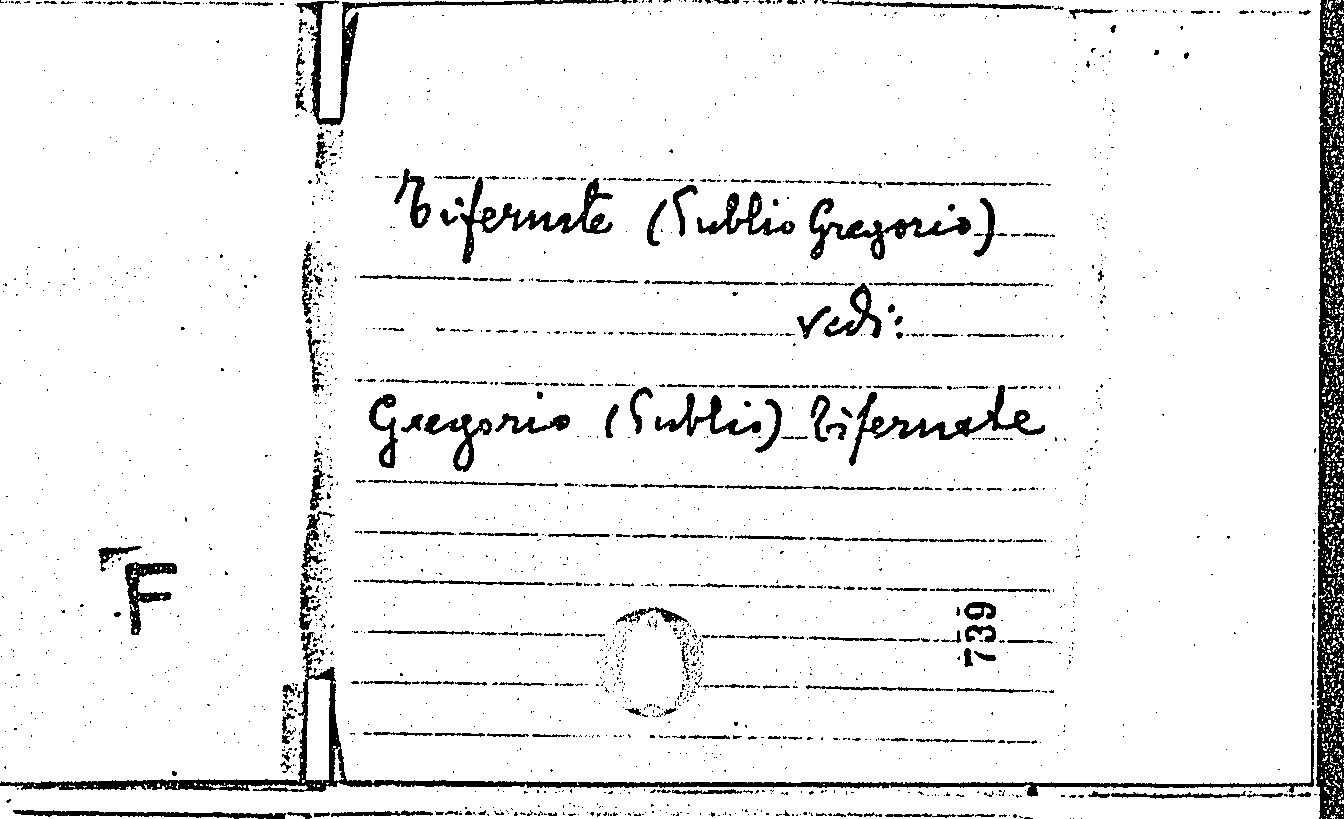 Tifernate (Publio Gregorio)
vedi:
Gregorio (Publio) Tifernate
F
739